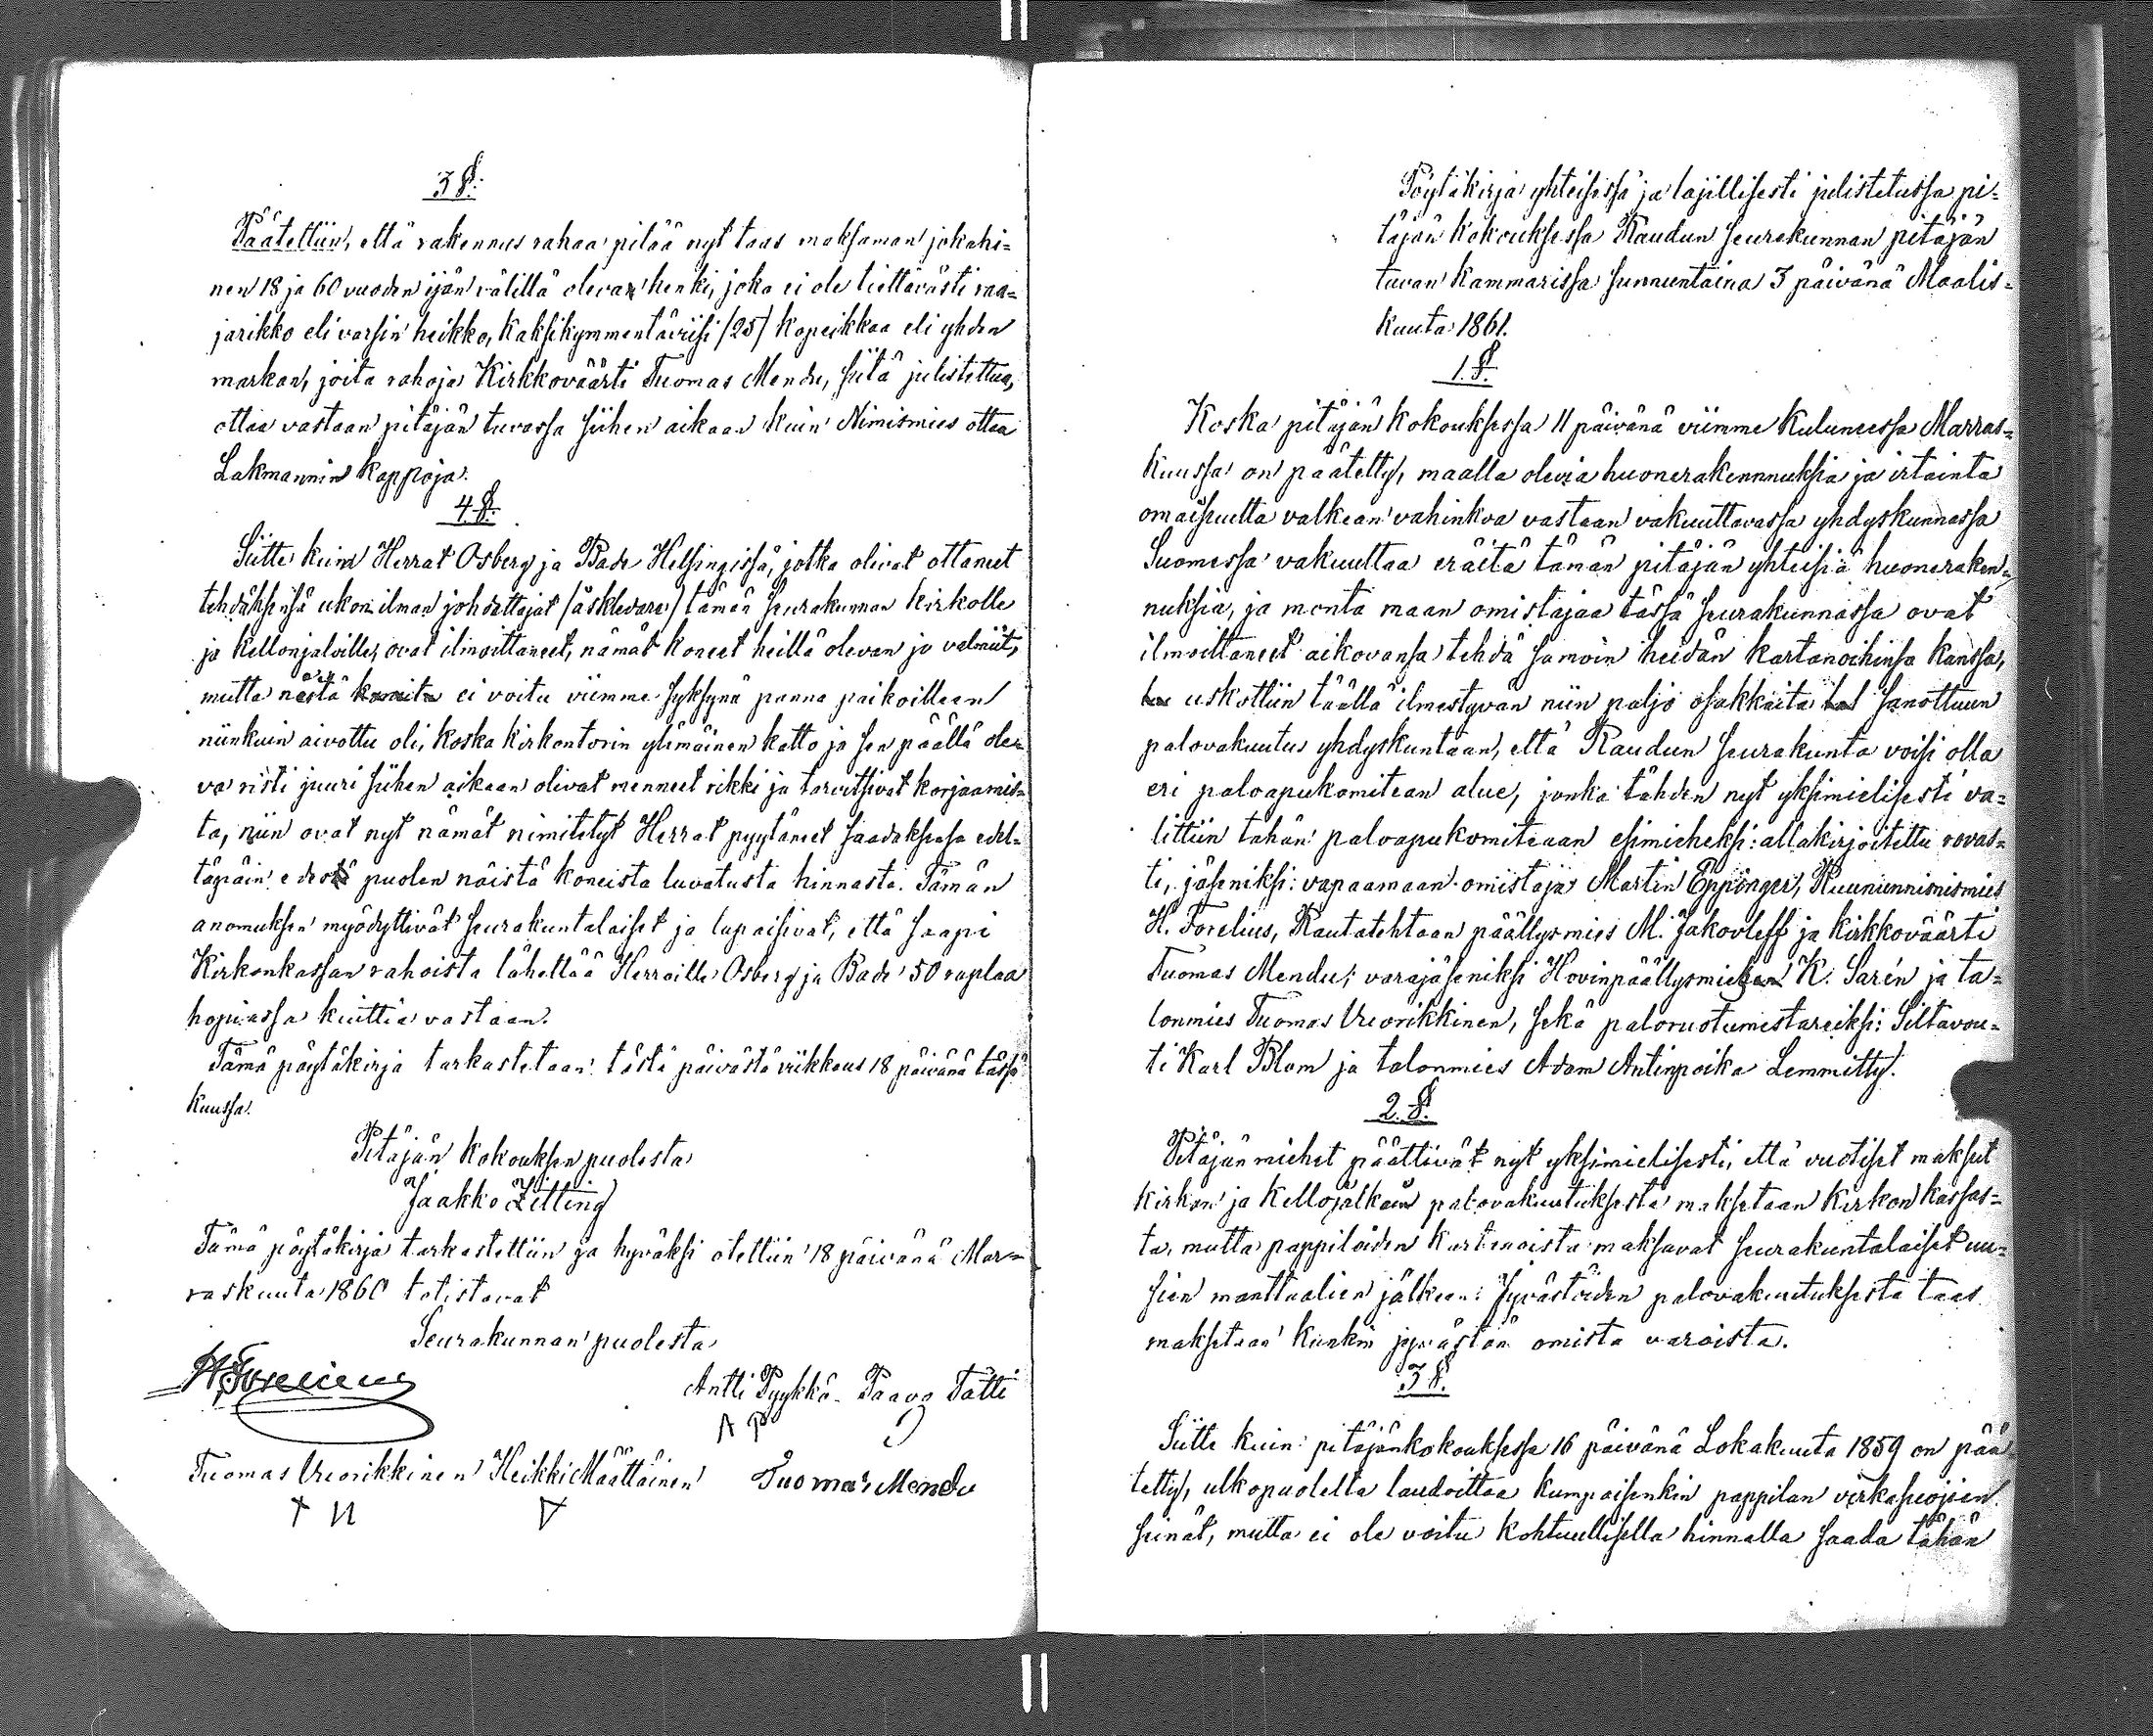 3 §.
Päätettiin, että rakennus rahaa pitää nyt taas maksaman jokahi=
nen 18 ja 60 vuoden ijän välillä olevan henki, joka ei ole tiettävästi raa=
jarikko eli varsin heikko, kaksikymmentäviisi /25/ kopeikkaa eli yhden
markan, joita rahoja Kirkkoväärti Tuomas Mendu, siitä julistettua,
ottaa vastaan pitäjän tuvassa siihen aikaan kuin Nimismies ottaa
Lakmannin kappoja.
4 §.
Siitte kuin Herrat Osberg ja Bade Helsingissä, jotka olivat ottaneet
tehdäksensä ukonilman johdattajat /åskledare/ tämän seurakunnan kirkolle
ja kellonjaloille, ovat ilmoittaneet, nämät koneet heillä olevan jo valmiit,
mutta näitä ei voitu viimme syksynä panna paikoilleen
niinkuin aivottu oli, koska kirkontorin ylimäinen katto ja sen päällä ole=
va risti juuri siihen aikaan olivat menneet rikki ja tarvitsivat korjaamis=
ta, niin ovat nyt nämät nimitetyt Herrat pyytäneet saadaksensa edel=
täpäin edes puolen näistä koneista luvatusta hinnasta. Tämän
anomuksen myödyttivät seurakuntalaiset ja lupaisivat, että saapi
Kirkonkassan rahoista lähettää Herroille Osberg ja Bade 50 ruplaa
hopiassa kuittia vastaan.
Tämä pöytäkirja tarkastetaan tästä päivästä viikkous 18 päivänä tässä
kuussa.
Pitäjän kokouksen puolesta
Jaakko Zitting
Tämä pöytäkirja tarkastettiin ja hyväksi otettiin 18 päivänä Mar=
raskuuta 1860 totistavat
Seurakunnan puolesta
H. Forelius
Antti Pyykkö Paavo Tatti
A P
Tuomas Vuorikkinen Heikki Määttäinen Tuomas Mendu
Pöytäkirja yhteisessä ja lajillisesti julistetussa pi=
täjän kokouksessa Raudun seurakunnan pitäjän
tuvan kammarissa sunnuntaina 3 päivänä Maalis=
kuuta 1861.
1. §.
Koska pitäjän kokouksessa 11 päivänä viimme kuluneessa Marras=
kuussa on päätetty, maalla olevia huonerakennnuksia ja irtainta
omaisuutta valkean vahinkoa vastaan vakuuttavassa yhdyskunnassa
Suomessa vakuuttaa eräitä tämän pitäjän yhteisiä huoneraken=
nuksia, ja monta maan omistajaa tässä seurakunnassa ovat
ilmoittaneet aikovansa tehdä samoin heidän kartanoihinsa kanssa,
uskottiin täällä ilmestyvän niin paljo osakkaita sanottuun
palovakuutus yhdyskuntaan, että Raudun seurakunta voisi olla
eri paloapukomitean alue, jonka tähden nyt yksimielisesti va=
littiin tähän paloapukomiteaan esimieheksi: allakirjoitettu rovas=
ti, jäseniksi: vapaamaan omistaja Martin Eppinger, Ruununnimismies
H. Forelius, Rautatehtaan päällysmies M. Jakovleff ja kirkkoväärti
Tuomas Mendu; varajäseniksi Hovinpäällysmies K. Sarén ja ta=
lonmies Tuomas Vuorikkinen, sekä paloruotumestareiksi: Siltavou=
ti Karl Blom ja talonmies Adam Antinpoika Lemmitty.
2. §.
Pitäjänmiehet päättivät nyt yksimielisesti, että vuotiset maksut
kirkon ja kellojalkain palovakuutuksesta maksetaan kirkon kassas=
ta, mutta pappiloiden kartanoista maksavat seurakuntalaiset uu=
sien manttaalien jälkeen: Jyvästöiden palovakuutuksesta taas
maksetaan kunkin jyvästön omista varoista.
3 §.
Siitte kuin pitäjänkokouksessa 16 päivänä Lokakuuta 1859 on pää
tetty, ulkopuolelta laudoittaa kumpaisenkin pappilan virkahuojien
seinät, mutta ei ole voitu kohtuullisella hinnalla saada tähän